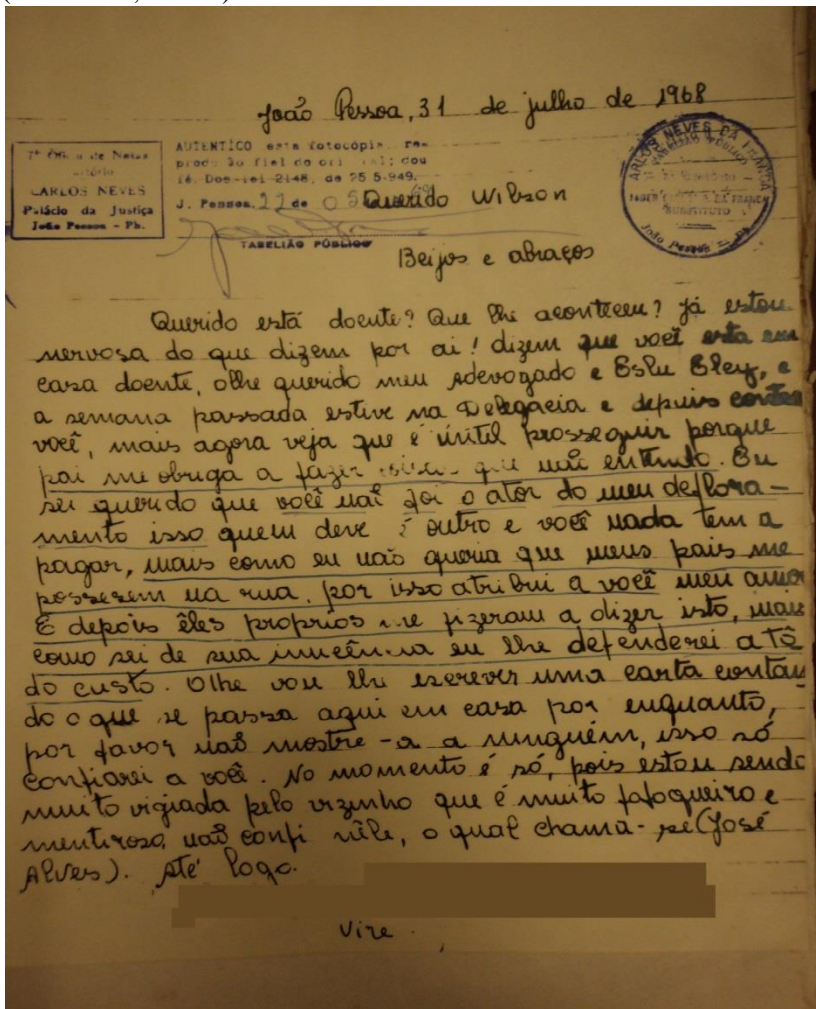 João Pessoa, 31 de julho de 1968
7º Ofício de Notas
CARLOS NEVES
Palácio da Justiça
João Pessoa - Pb.
AUTENTICO esta fotocópia, re-
produção fiel do original; dou
fé. Dec-lei 2148, de 25-5-949.
J. Pessoa, 22 de 05
TABELIÃO PÚBLICO
CARLOS NEVES DA FRANCA
TABELIÃO PÚBLICO
SUBSTITUTO
João Pessoa - Pb.
Querido Wilson
Beijos e abraços
Querido está doente? Que lhe aconteceu? já estou
nervosa do que dizem por ai! dizem que você esta em
casa doente, olhe querido meu Adevogado e Eslu Eley, e
a semana passada estive na Delegacia e depuis contra
você, mais agora veja que é inútil prosseguir porque
pai me obriga a fazer coisas que não entendo. Eu
sei querido que você não foi o ator do meu deflora-
mento isso quem deve é outro e você nada tem a
pagar, mais como eu não queria que meus pais me
possesem na rua, por isso atribui a você meu amor
E depois êles proprios me fizeram a dizer isto, mais
como sei de sua inucência eu lhe defenderei a tô
do custo. Olhe vou lhe escrever uma carta contan
do o que se passa aqui em casa por enquanto,
por favor não mostre-a a ninguém, isso só
confiarei a você. No momento é só, pois estou sendo
muito vigiada pelo vizinho que é muito fofoqueiro e
mentiroso não confi nêle, o qual chama-se (José
Alves). Até logo.
Vire.